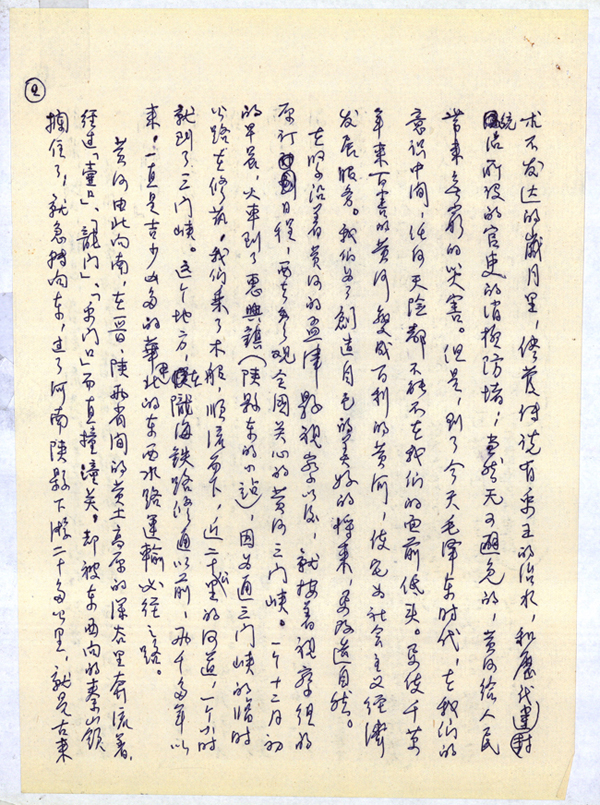 ②
术不发达的岁月里，尽管传说有禹王的治水，和历代封建
统治所设的官吏的消极防堵，当然无可避免的，黄河给人民
带来无穷的灾害。但是，到了今天毛泽东时代，在我们的
意识中间，任何天险都不能不在我们的面前低头。要使千万
年来百害的黄河变成百利的黄河，使它为社会主义经济
发展服务。我们为了创造自己的美好的将来，要改造自然。
在坚沿着黄河的孟津县视察以后，就按着视察组的
原订日程，再去参观全国关心的黄河三门峡。一个十二月初
的早晨，火车到了惠兴镇（陕县东的小站），因为通三门峡的临时
公路在修筑，我们乘了木船，顺流而下，近二十里的河道，一个小时
就到了三门峡。这个地方，在陇海铁路修通以前，两千多年以
来，一直是古少山多的华北的东西水路运输必经之路。
黄河由此向南，在晋、陕两省间的黄土高原的深谷里奔流着，
经过「壶口」、「龙门」、「禹门口」而直撞潼关。却被东西向的秦山锁
搁住了，就急转向东，过了河南陕县下游二十多公里，就是古来